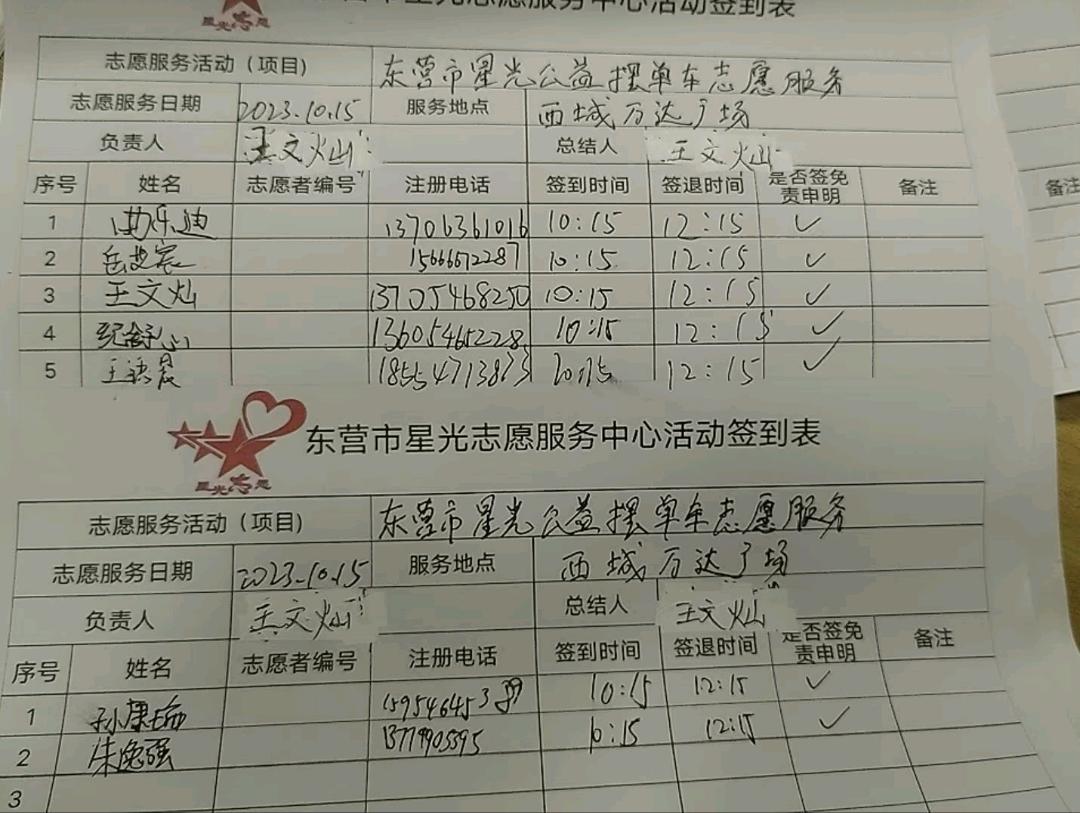 东营市星光志愿服务中心活动签到表
星光志愿
志愿服务活动（项目） 东营市星光公益摆单车志愿服务
志愿服务日期 2023.10.15 服务地点 西城万达广场
负责人 王文灿 总结人 王文灿
序号 姓名 志愿者编号 注册电话 签到时间 签退时间 是否签免责申明 备注
备注
1 13706361016 10:15 12:15 ✓
2 15666672287 10:15 12:15 ✓
3 王文灿 13705468250 10:15 12:15 ✓
4 13605465228 10:15 12:15 ✓
5 18554713873 10:15 12:15 ✓
东营市星光志愿服务中心活动签到表
星光志愿
志愿服务活动（项目） 东营市星光公益摆单车志愿服务
志愿服务日期 2023.10.15 服务地点 西城万达广场
负责人 王文灿 总结人 王文灿
序号 姓名 志愿者编号 注册电话 签到时间 签退时间 是否签免责申明 备注
1 10:15 12:15 ✓
2 朱逸强 10:15 12:15 ✓
3